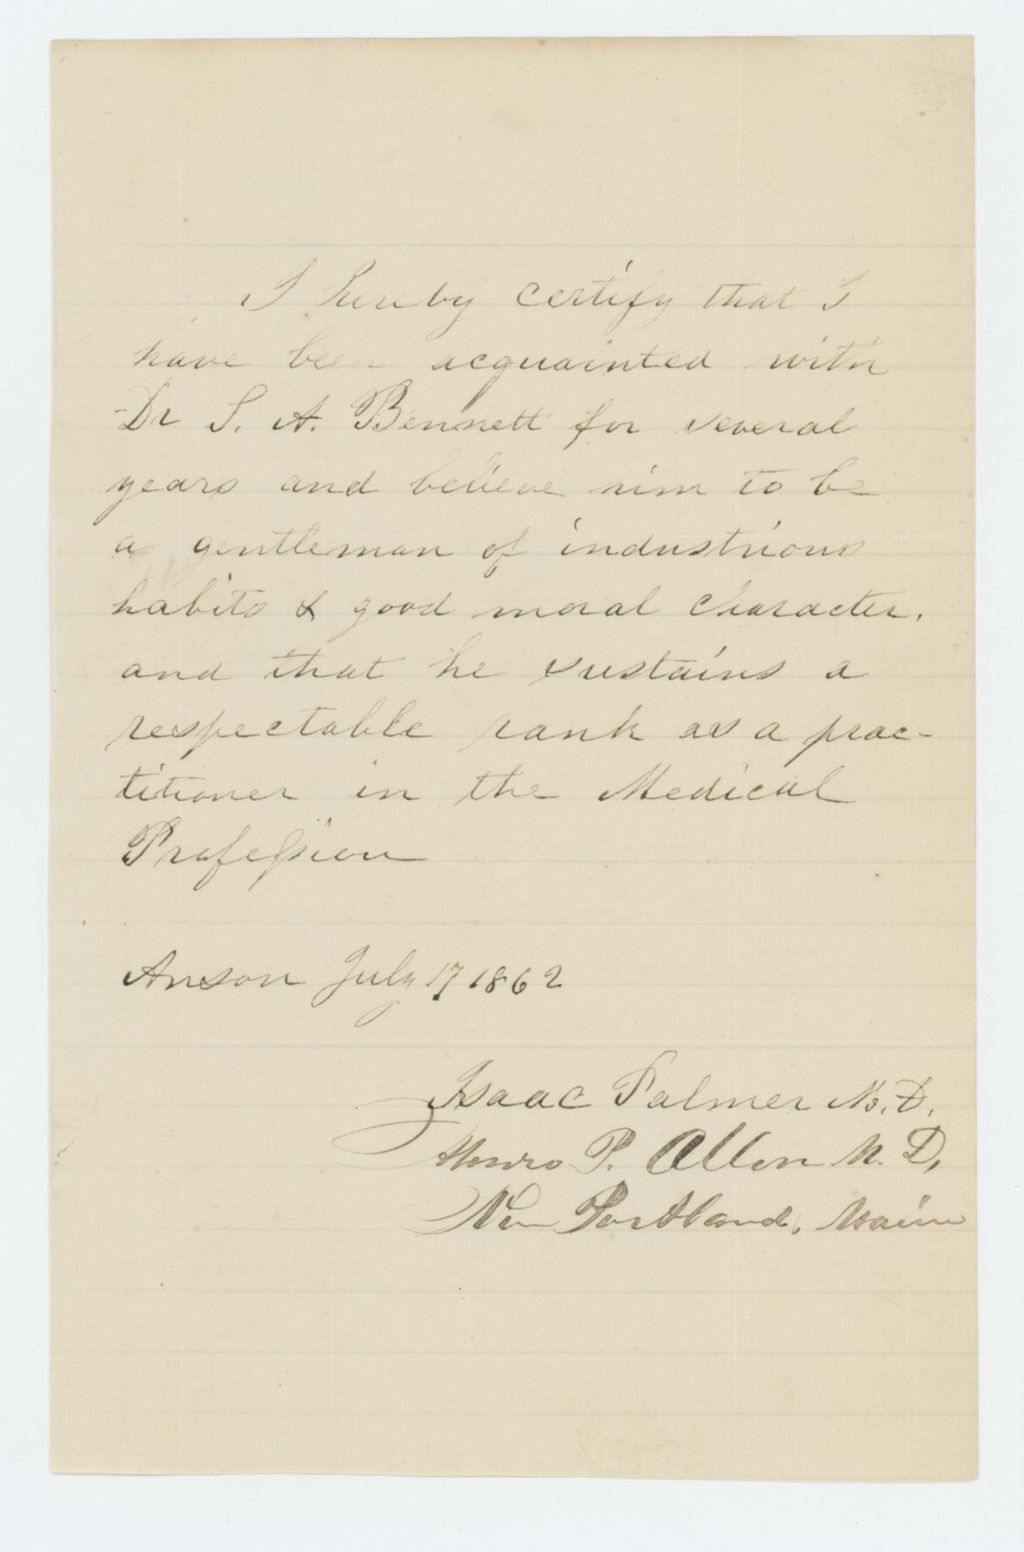 I hereby certify that I
have been acquainted with
Dr S. A. Bennett for several
years and believe him to be
a gentleman of industrious
habits & good moral character.
and that he sustains a
respectable rank as a prac-
titioner in the Medical
Profession
Anson July 17 1862
Isaac Palmer M.D.
P. Allen M.D,
New Portland, Maine